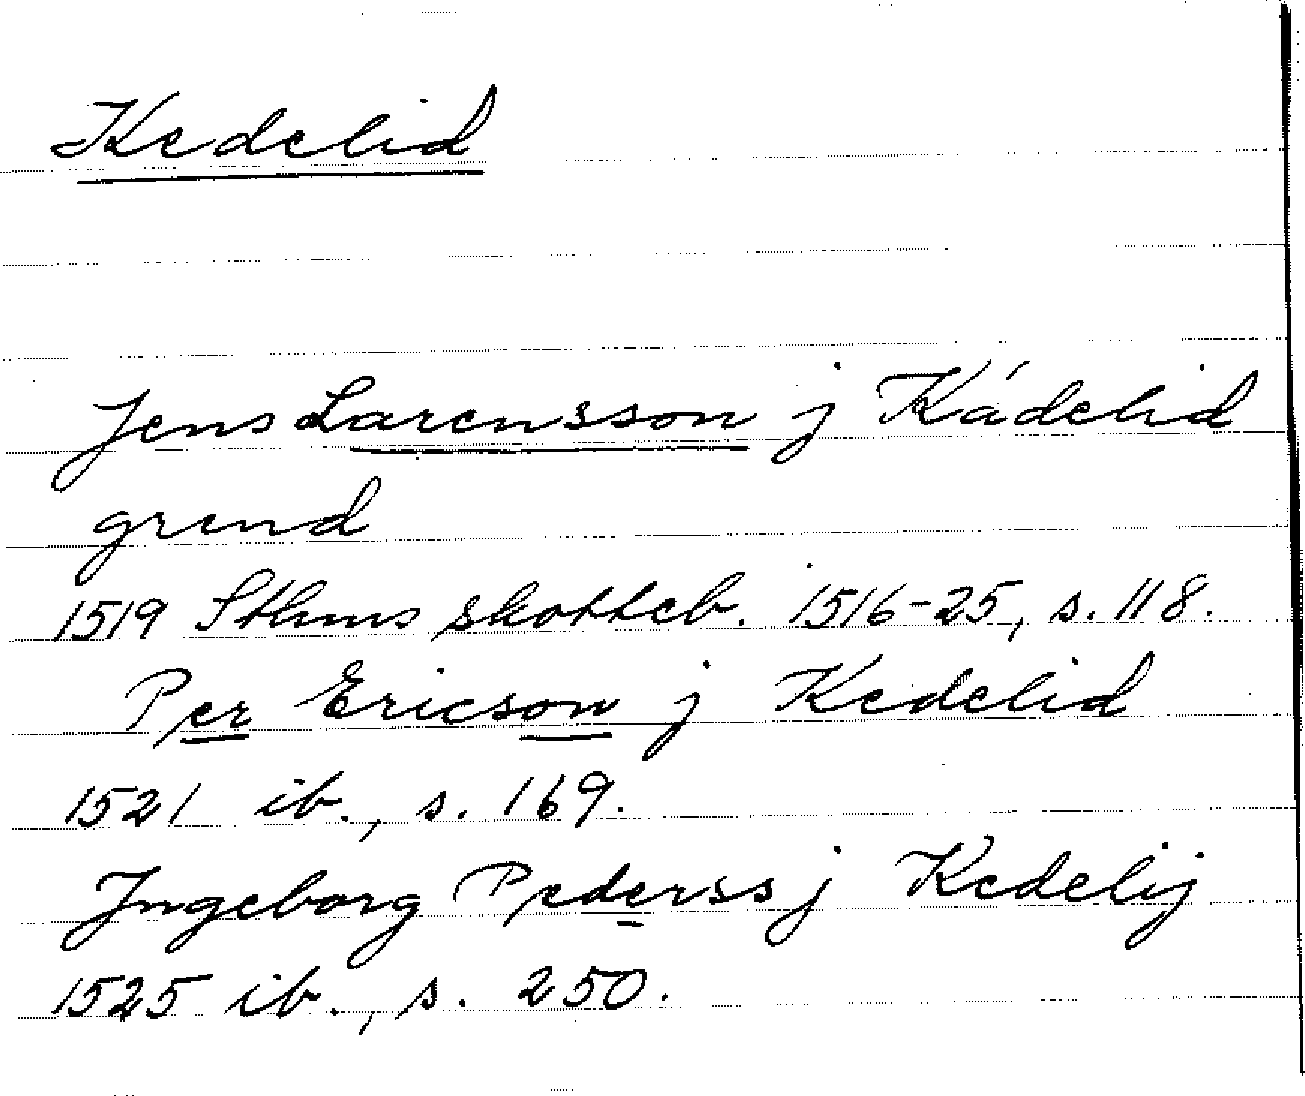 Kedelid
Jens Larensson j Kádelid
grend
1519 Sthms skotteb. 1516-25, s. 118.
Per Ericson j Kedelid
1521 ib., s. 169.
Jngeborg Pederss j Kedelij
1525 ib., s. 250.